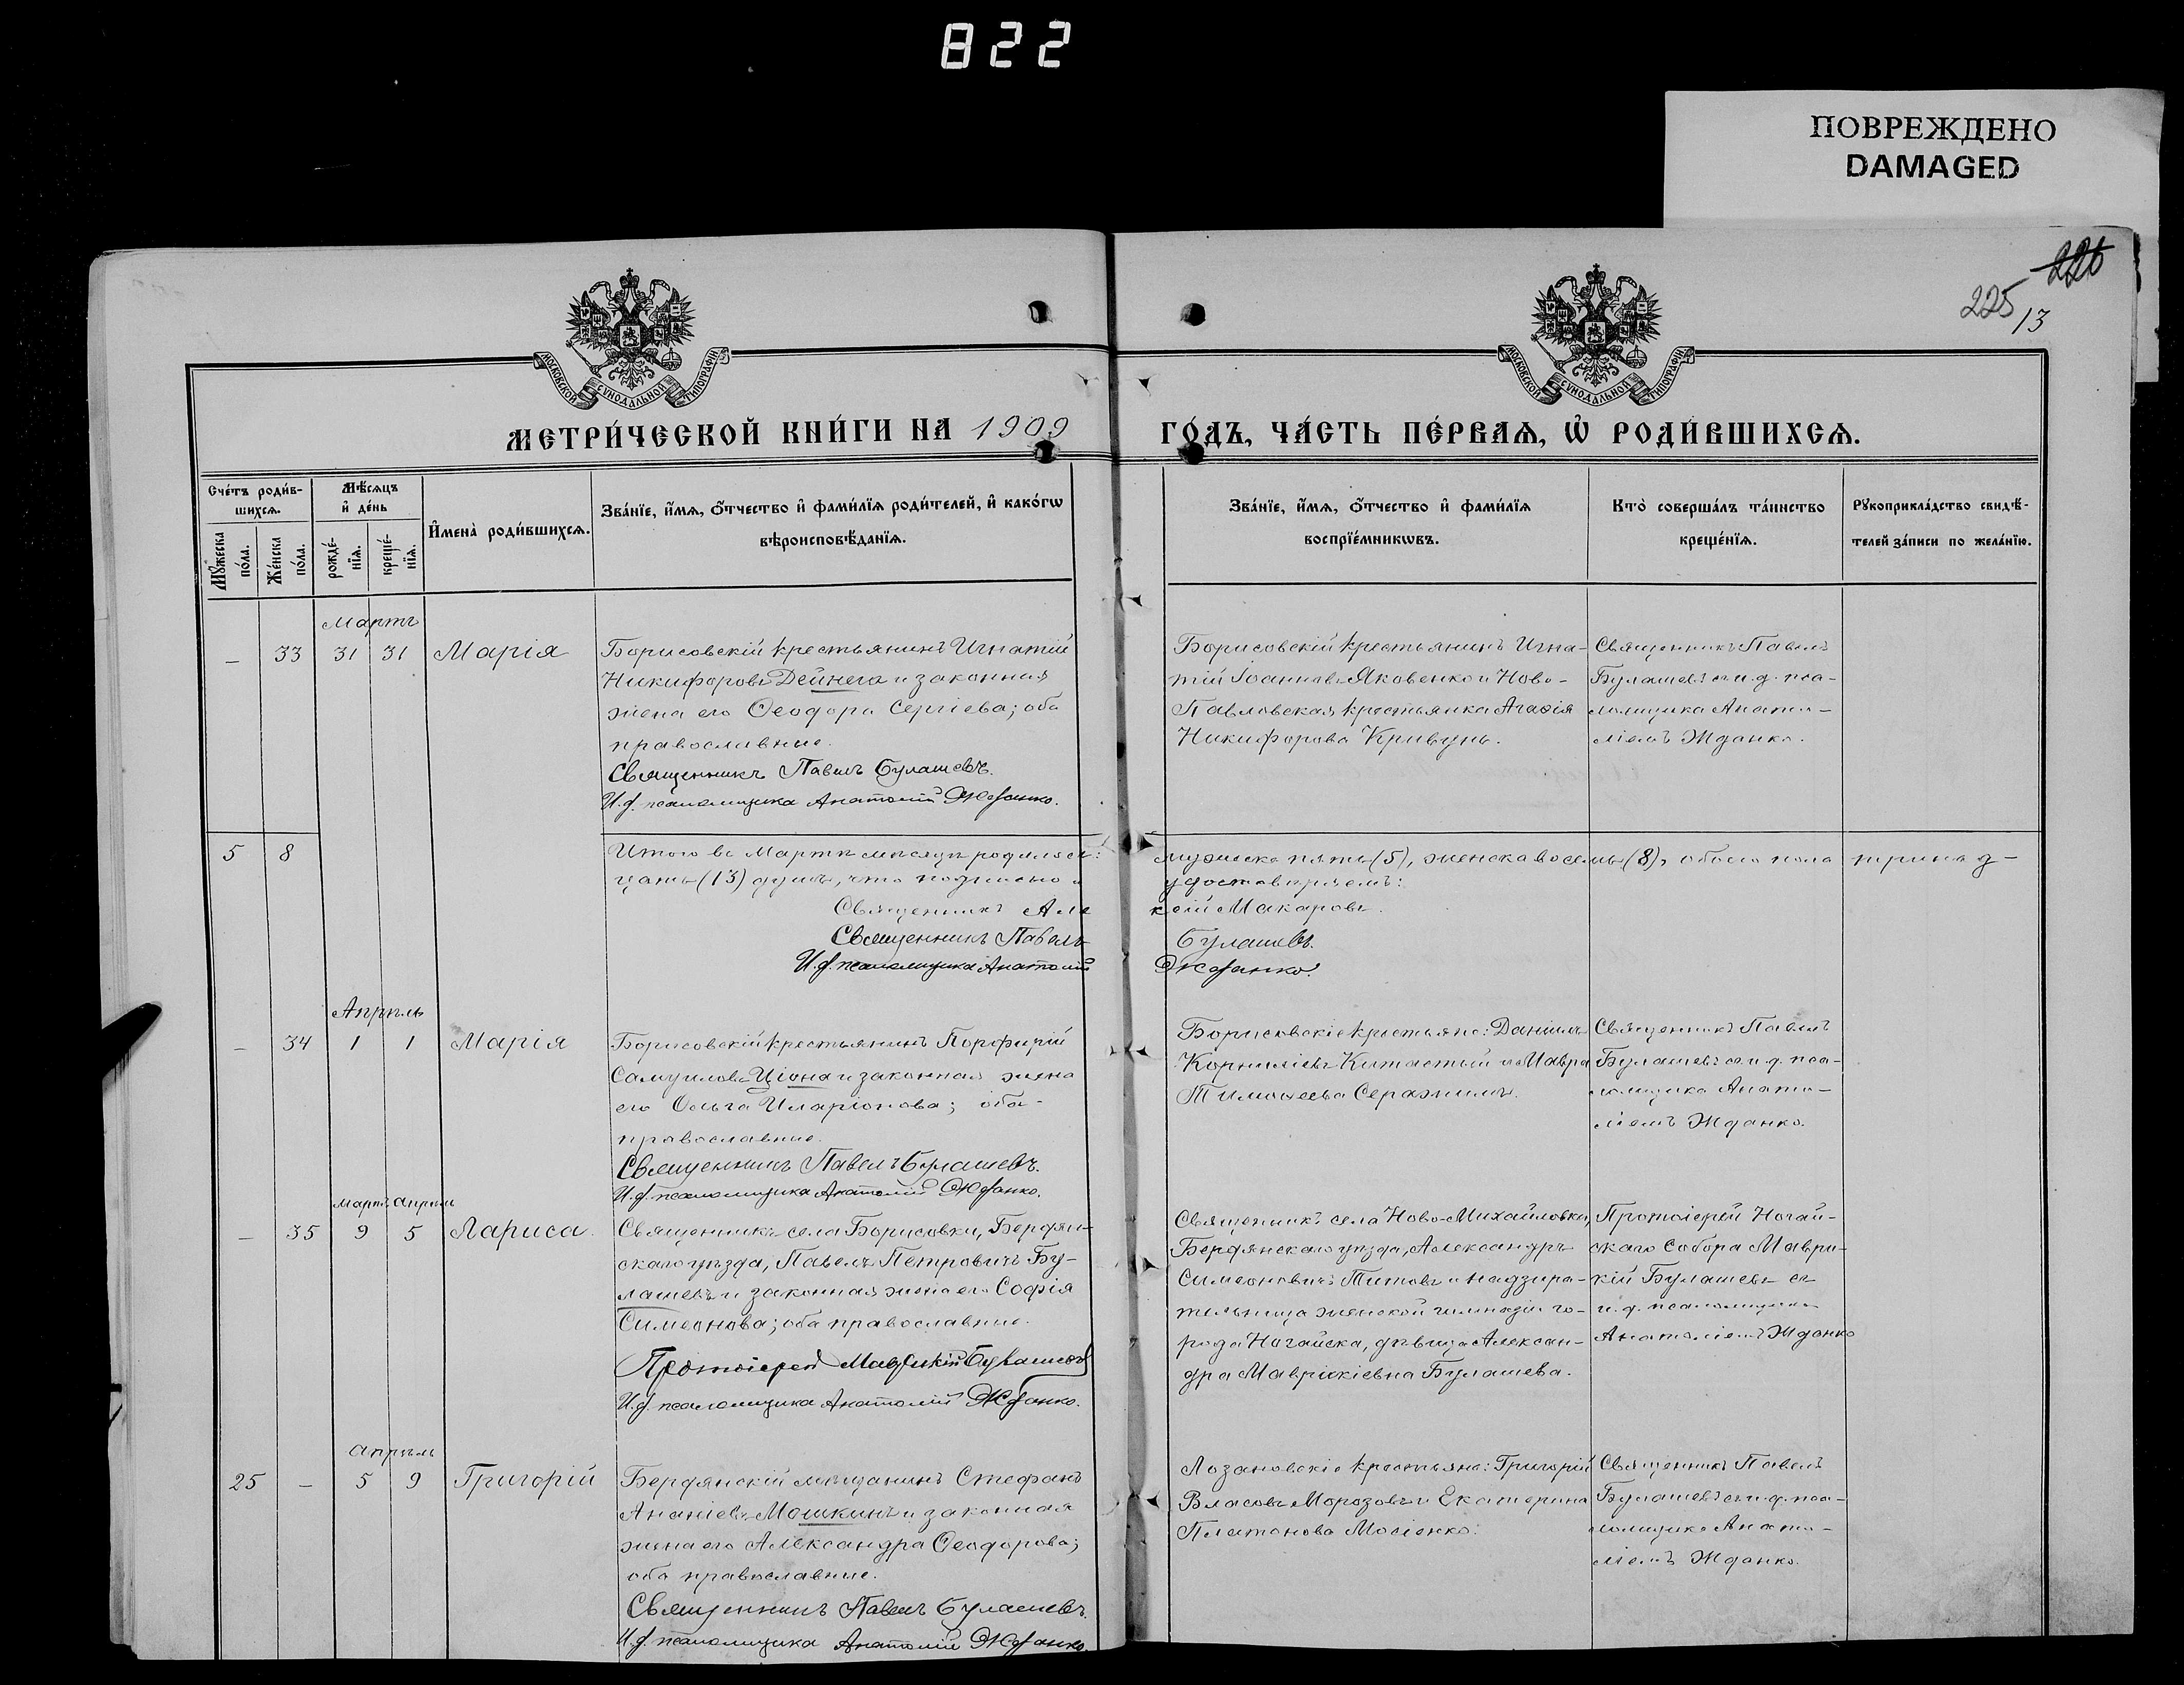 822
ПОВРЕЖДЕНО
DAMAGED
226
225
13
МОСКОВСКОЙ СѴНОДАЛЬНОЙ ТИПОГРАФІИ
МОСКОВСКОЙ СѴНОДАЛЬНОЙ ТИПОГРАФІИ
МЕТРИ́ЧЕСКОЙ КНИ́ГИ НА 1909 ГО́ДЪ, ЧА́СТЬ ПЕ́РВАѦ, Ѡ҆ РОДИ́ВШИХСѦ.
Сче́тъ роди́в-
шихсѧ.
Мꙋ́жеска по́ла.
Же́нска по́ла.
Мѣ́сѧцъ
и҆ де́нь
рожде́-
нїѧ.
креще́-
нїѧ.
И҆мена̀ роди́вшихсѧ.
Зва́нїе, и҆́мѧ, ѻ҆́тчество и҆ фами́лїѧ роди́телей, и҆ како́гѡ
вѣроисповѣ́данїѧ.
Зва́нїе, и҆́мѧ, ѻ҆́тчество и҆ фами́лїѧ
воспрїе́мникѡвъ.
Кто̀ соверша́лъ та́инство
креще́нїѧ.
Рꙋкоприкла́дство свидѣ́-
телей за́писи по жела́нїю.
Мартъ
— 33 31 31 Марія
Борисовскій крестьянинъ Игнатій
Никифоровъ Дейнега и законная
жена его Ѳеодора Сергіева; оба
православные.
Священникъ Павелъ Булашевъ.
И.д. псаломщика Анатолій Жданко.
Борисовскій крестьянинъ Игна-
тій Іоанновъ Яковенко и Ново-
Павловская крестьянка Агаѳія
Никифорова Кривунь.
Священникъ Павелъ
Булашевъ съ и.д. пса-
ломщика Анато-
ліемъ Жданко.
5 8 Итого въ Мартѣ мѣсяцѣ родилось: мужеска пять (5), женска восемь (8), обоего пола тринад-
цать (13) душъ, что подписью удостовѣряемъ:
Священникъ Алексій Макаровъ.
Священникъ Павелъ Булашевъ.
И.д. псаломщика Анатолій Жданко.
Апрѣль
— 34 1 1 Марія
Борисовскій крестьянинъ Порфирій
Самуиловъ Ціона и законная жена
его Ольга Иларіонова; оба
православные.
Священникъ Павелъ Булашевъ.
И.д. псаломщика Анатолій Жданко.
Борисовскіе крестьяне: Даніилъ
Корниліевъ Китастый и Мавра
Тимоѳеева Серажимъ.
Священникъ Павелъ
Булашевъ съ и.д. пса-
ломщика Анато-
ліемъ Жданко.
Мартъ Апрѣль
— 35 9 5 Лариса.
Священникъ села Борисовки, Бердян-
скаго уѣзда, Павелъ Петровичъ Бу-
лашевъ и законная жена его Софія
Симеонова; оба православные.
Протоіерей Маврикій Булашевъ
И.д. псаломщика Анатолій Жданко.
Священникъ села Ново-Михайловки,
Бердянскаго уѣзда, Александръ
Симеоновичъ Титовъ и надзира-
тельница женской гимназіи го-
рода Ногайска, дѣвица Алексан-
дра Маврикіевна Булашева.
Протоіерей Ногай-
скаго Собора Маври-
кій Булашевъ съ
и.д. псаломщика
Анатоліемъ Жданко
Апрѣль
25 — 5 9 Григорій
Бердянскій мѣщанинъ Стефанъ
Ананіевъ Мошкинъ и законная
жена его Александра Ѳеодорова;
оба православные.
Священникъ Павелъ Булашевъ.
И.д. псаломщика Анатолій Жданко.
Лозановскіе крестьяне: Григорій
Власовъ Морозовъ и Екатерина
Платонова Мосіенко.
Священникъ Павелъ
Булашевъ съ и.д. пса-
ломщика Анато-
ліемъ Жданко.